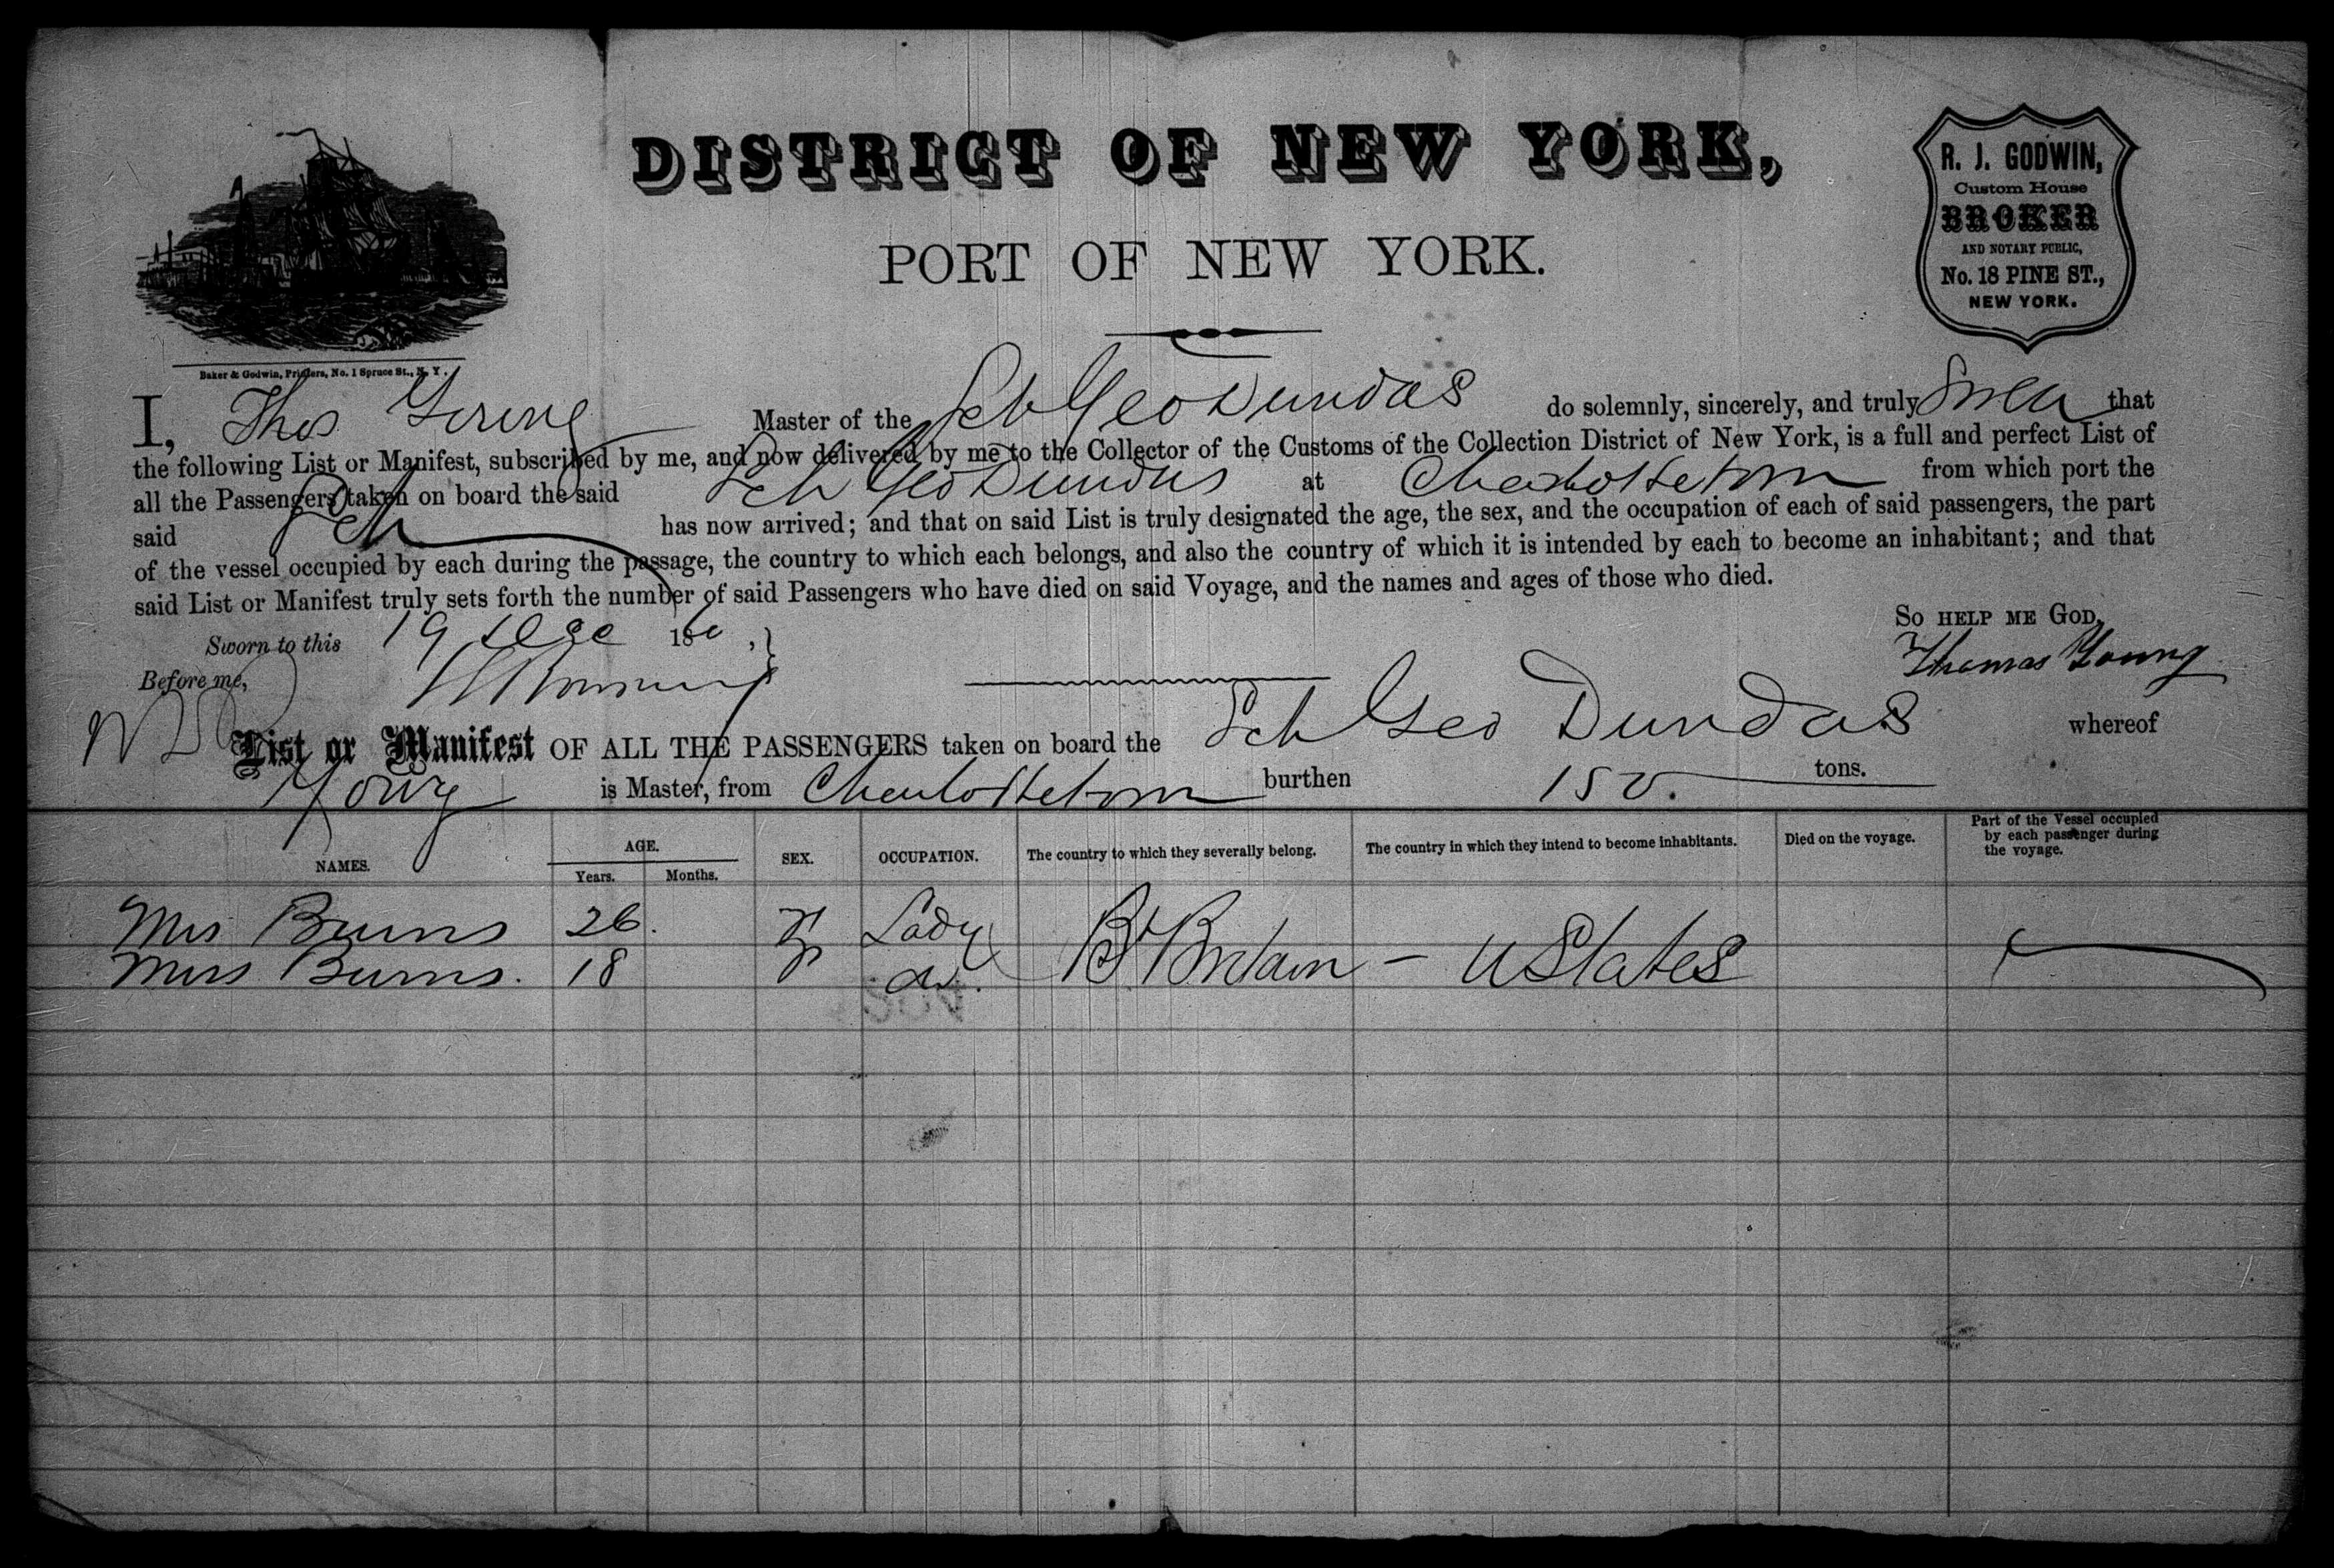 DISTRICT OF NEW YORK,
PORT OF NEW YORK.
R. J. GODWIN,
Custom House
BROKER
AND NOTARY PUBLIC,
No. 18 PINE ST.,
NEW YORK.
Baker & Godwin, Printers, No. 1 Spruce St., N. Y.
I, Thos Young Master of the Sch Geo Dundas do solemnly, sincerely, and truly Swear that
the following List or Manifest, subscribed by me, and now delivered by me to the Collector of the Customs of the Collection District of New York, is a full and perfect List of
all the Passengers taken on board the said Sch Geo Dundas at Charlottetown from which port the
said Sch has now arrived; and that on said List is truly designated the age, the sex, and the occupation of each of said passengers, the part
of the vessel occupied by each during the passage, the country to which each belongs, and also the country of which it is intended by each to become an inhabitant; and that
said List or Manifest truly sets forth the number of said Passengers who have died on said Voyage, and the names and ages of those who died.
So HELP ME GOD.
Sworn to this 19 Dec 186 ,
Thomas Young
Before me,
List or Manifest OF ALL THE PASSENGERS taken on board the Sch Geo Dundas whereof
Young is Master, from Charlottetown burthen 150. tons.
NAMES. AGE. Years. Months. SEX. OCCUPATION. The country to which they severally belong. The country in which they intend to become inhabitants. Died on the voyage. Part of the Vessel occupied by each passenger during the voyage.
Mrs Burns 26. F Lady
Miss Burns. 18 F do. Bt Britain - U States